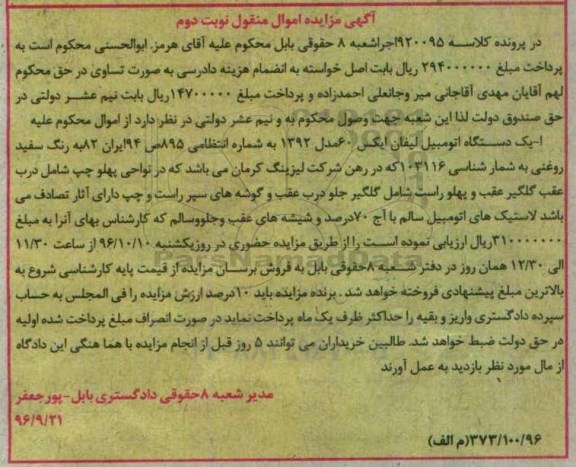 آگهی مزایده اموال منقول نوبت دوم
در پرونده کلاسه ۹۲۰۰۹۵اجراشعبه ۸ حقوقی بابل محکوم علیه آقای هرمز. ابوالحسنی محکوم است به
پرداخت مبلغ ۲۹۴۰۰۰۰۰۰ ریال بابت اصل خواسته به انضمام هزینه دادرسی به صورت تساوی در حق محکوم
لهم آقایان مهدی آقاجانی میر وجانعلی احمدزاده و پرداخت مبلغ ۱۴۷۰۰۰۰۰ریال بابت نیم عشر دولتی در
حق صندوق دولت لذا این شعبه جهت وصول محکوم به و نیم عشر دولتی در نظر دارد از اموال محکوم علیه
۱-یک دستگاه اتومبیل لیفان ایکس ۶۰مدل ۱۳۹۲ به شماره انتظامی ۸۹۵ص ۹۴ایران ۸۲به رنگ سفید
روغنی به شمار شناسی ۱۰۳۱۱۶که در رهن شرکت لیزینگ کرمان می باشد که در نواحی پهلو چپ شامل درب
عقب گلگیر عقب و پهلو راست شامل گلگیر جلو درب عقب و گوشه های سپر راست و چپ دارای آثار تصادف می
باشد لاستیک های اتومبیل سالم با آج ۷۰درصد و شیشه های عقب وجلووسالم که کارشناس بهای آنرا به مبلغ
۳۱۰۰۰۰۰۰۰ریال ارزیابی نموده است را از طریق مزایده حضوری در روزیکشنبه ۹۶/۱۰/۱۰ از ساعت ۱۱/۳۰
الی ۱۲/۳۰ همان روز در دفتر شعبه ۸حقوقی بابل به فروش برساند مزایده از قیمت پایه کارشناسی شروع به
بالاترین مبلغ پیشنهادی فروخته خواهد شد . برنده مزایده باید ۱۰درصد ارزش مزایده را فی المجلس به حساب
سپرده دادگستری واریز و بقیه را حداکثر ظرف یک ماه پرداخت نماید در صورت انصراف مبلغ پرداخت شده اولیه
در حق دولت ضبط خواهد شد. طالبین خریداران می توانند ۵ روز قبل از انجام مزایده با هما هنگی این دادگاه
از مال مورد نظر بازدید به عمل آورند
مدیر شعبه ۸حقوقی دادگستری بابل-پورجعفر
۹۶/۹/۲۱
۳۷۳/۱۰۰/۹۶(م الف)
ParsNamadData